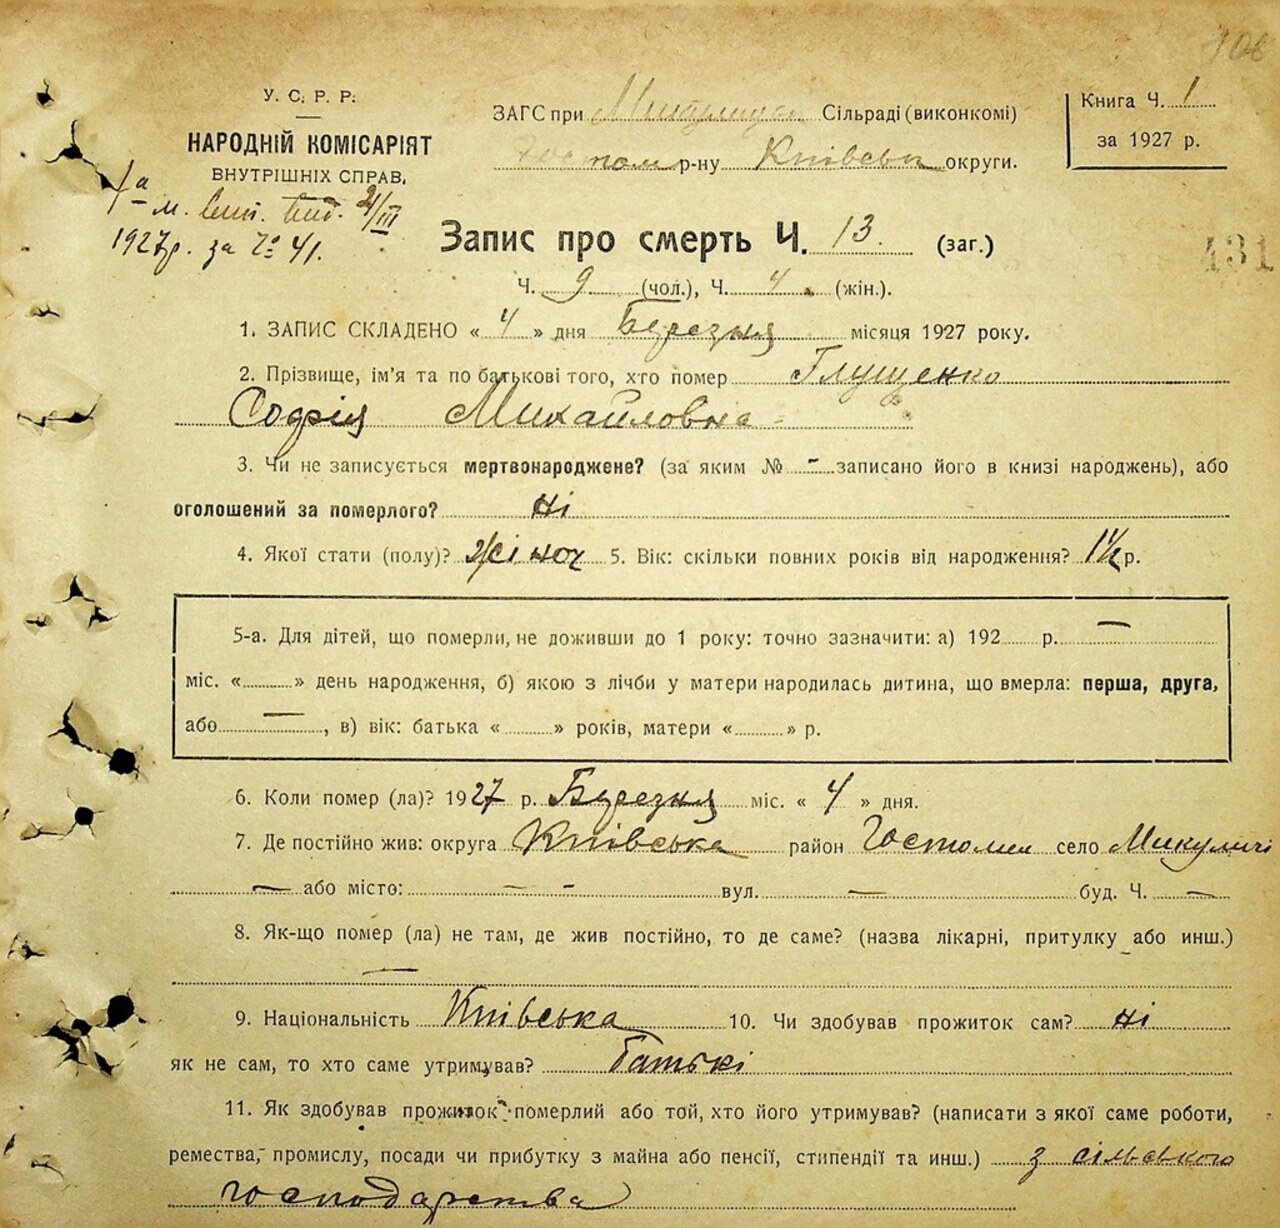 У. С. Р. Р.
НАРОДНІЙ КОМІСАРІЯТ
ВНУТРІШНІХ СПРАВ.
1927 р. за № 41.
ЗАГС при Сільраді (виконкомі)
р-ну Київськ округи.
Книга Ч. 1
за 1927 р.
431
Запис про смерть Ч. 13. (заг.)
Ч. 9 (чол.), Ч. 4 (жін.).
1. ЗАПИС СКЛАДЕНО « 4 » дня Березня місяця 1927 року.
2. Прізвище, ім'я та по батькові того, хто помер Глущенко
Софія Михайловна
3. Чи не записується мертвонароджене? (за яким № - записано його в книзі народжень), або
оголошений за померлого? Ні
4. Якої стати (полу)? Жіноч 5. Вік: скільки повних років від народження? 1½ р.
5-а. Для дітей, що померли, не доживши до 1 року: точно зазначити: а) 192 р. —
міс. « » день народження, б) якою з лічби у матери народилась дитина, що вмерла: перша, друга,
або —, в) вік: батька « » років, матери « » р.
6. Коли помер (ла)? 1927 р. Березня міс. « 4 » дня.
7. Де постійно жив: округа Київська район Гостомел село Микуличі
— або місто: — - вул. — буд. Ч. —
8. Як-що помер (ла) не там, де жив постійно, то де саме? (назва лікарні, притулку або инш.)
—
9. Національність Київська 10. Чи здобував прожиток сам? ні
як не сам, то хто саме утримував? Батькі
11. Як здобував прожиток померлий або той, хто його утримував? (написати з якої саме роботи,
ремества, промислу, посади чи прибутку з майна або пенсії, стипендії та инш.) з сільського
господарства